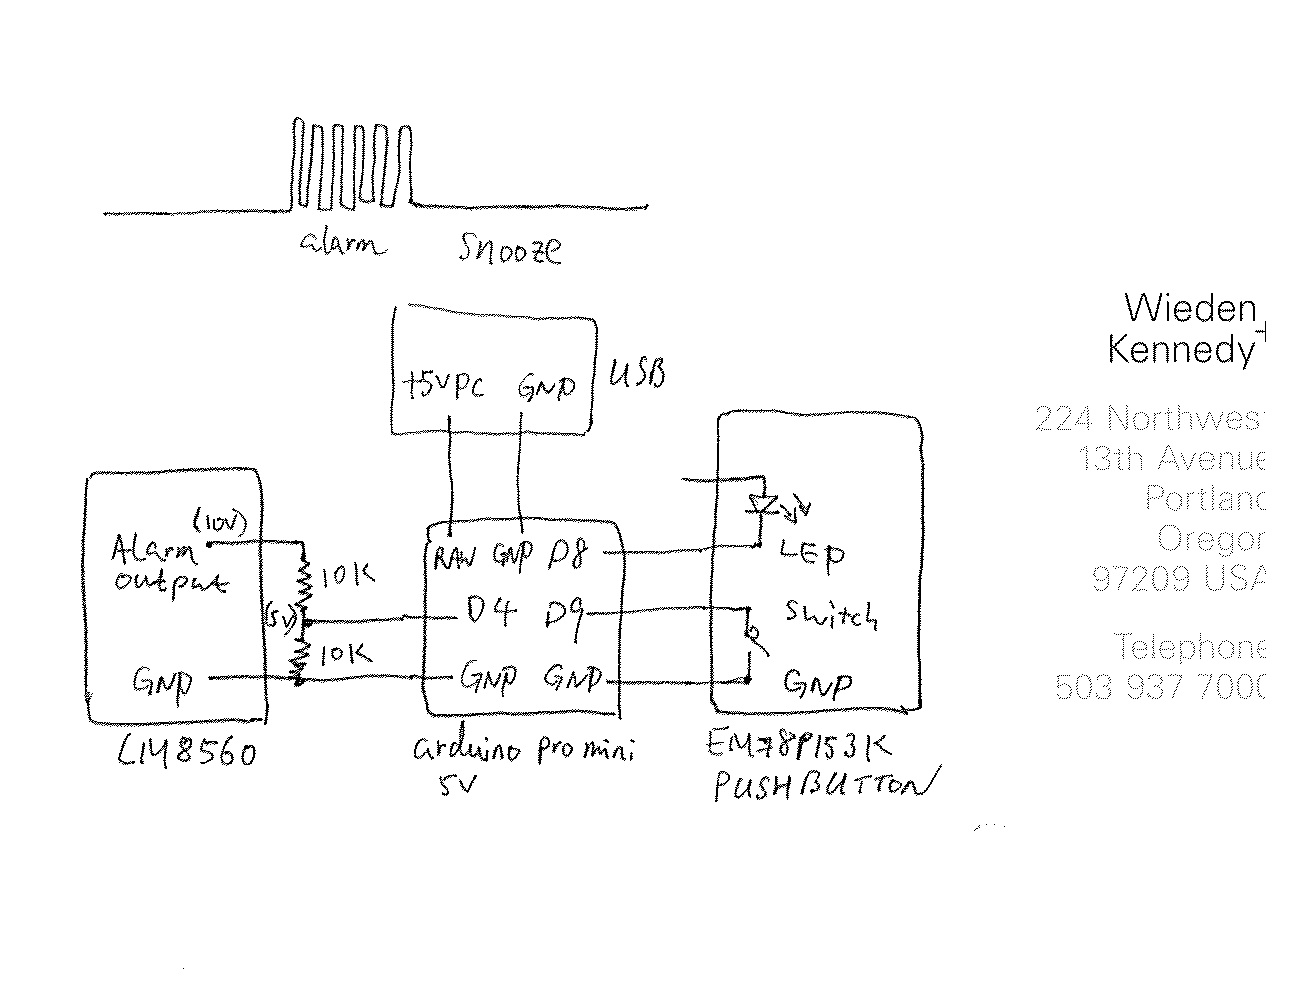 alarm
snooze
+5VPC GND
USB
(10V)
Alarm
output
10K
(5V)
10K
GND
LM8560
RAW GND D8
D4 D9
GND GND
arduino pro mini
5V
LED
Switch
GND
EM78P153K
PUSHBUTTON
Wieden
Kennedy+
224 Northwest
13th Avenue
Portland
Oregon
97209 USA
Telephone
503 937 7000